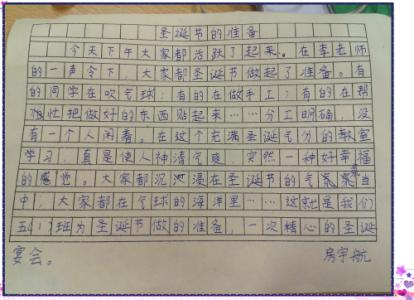 圣诞节的准备
今天下午大家都活跃了起来。在李老师
的一声令下，大家都圣诞节做起了准备。有
的同学在吹气球；有的在做手工；有的在帮
忙把做好的东西贴起来……分工明确，没
有一个人闲着。在这个充满圣诞气分的教室
学习，真是使人神清气爽，突然一种好幸福
的感觉。大家都沉浸在圣诞节的气氛当
中，大家都在气球的海洋里……这就是我们
五（1）班为圣诞节做的准备，一次精心的圣诞
宴会。
房宇航